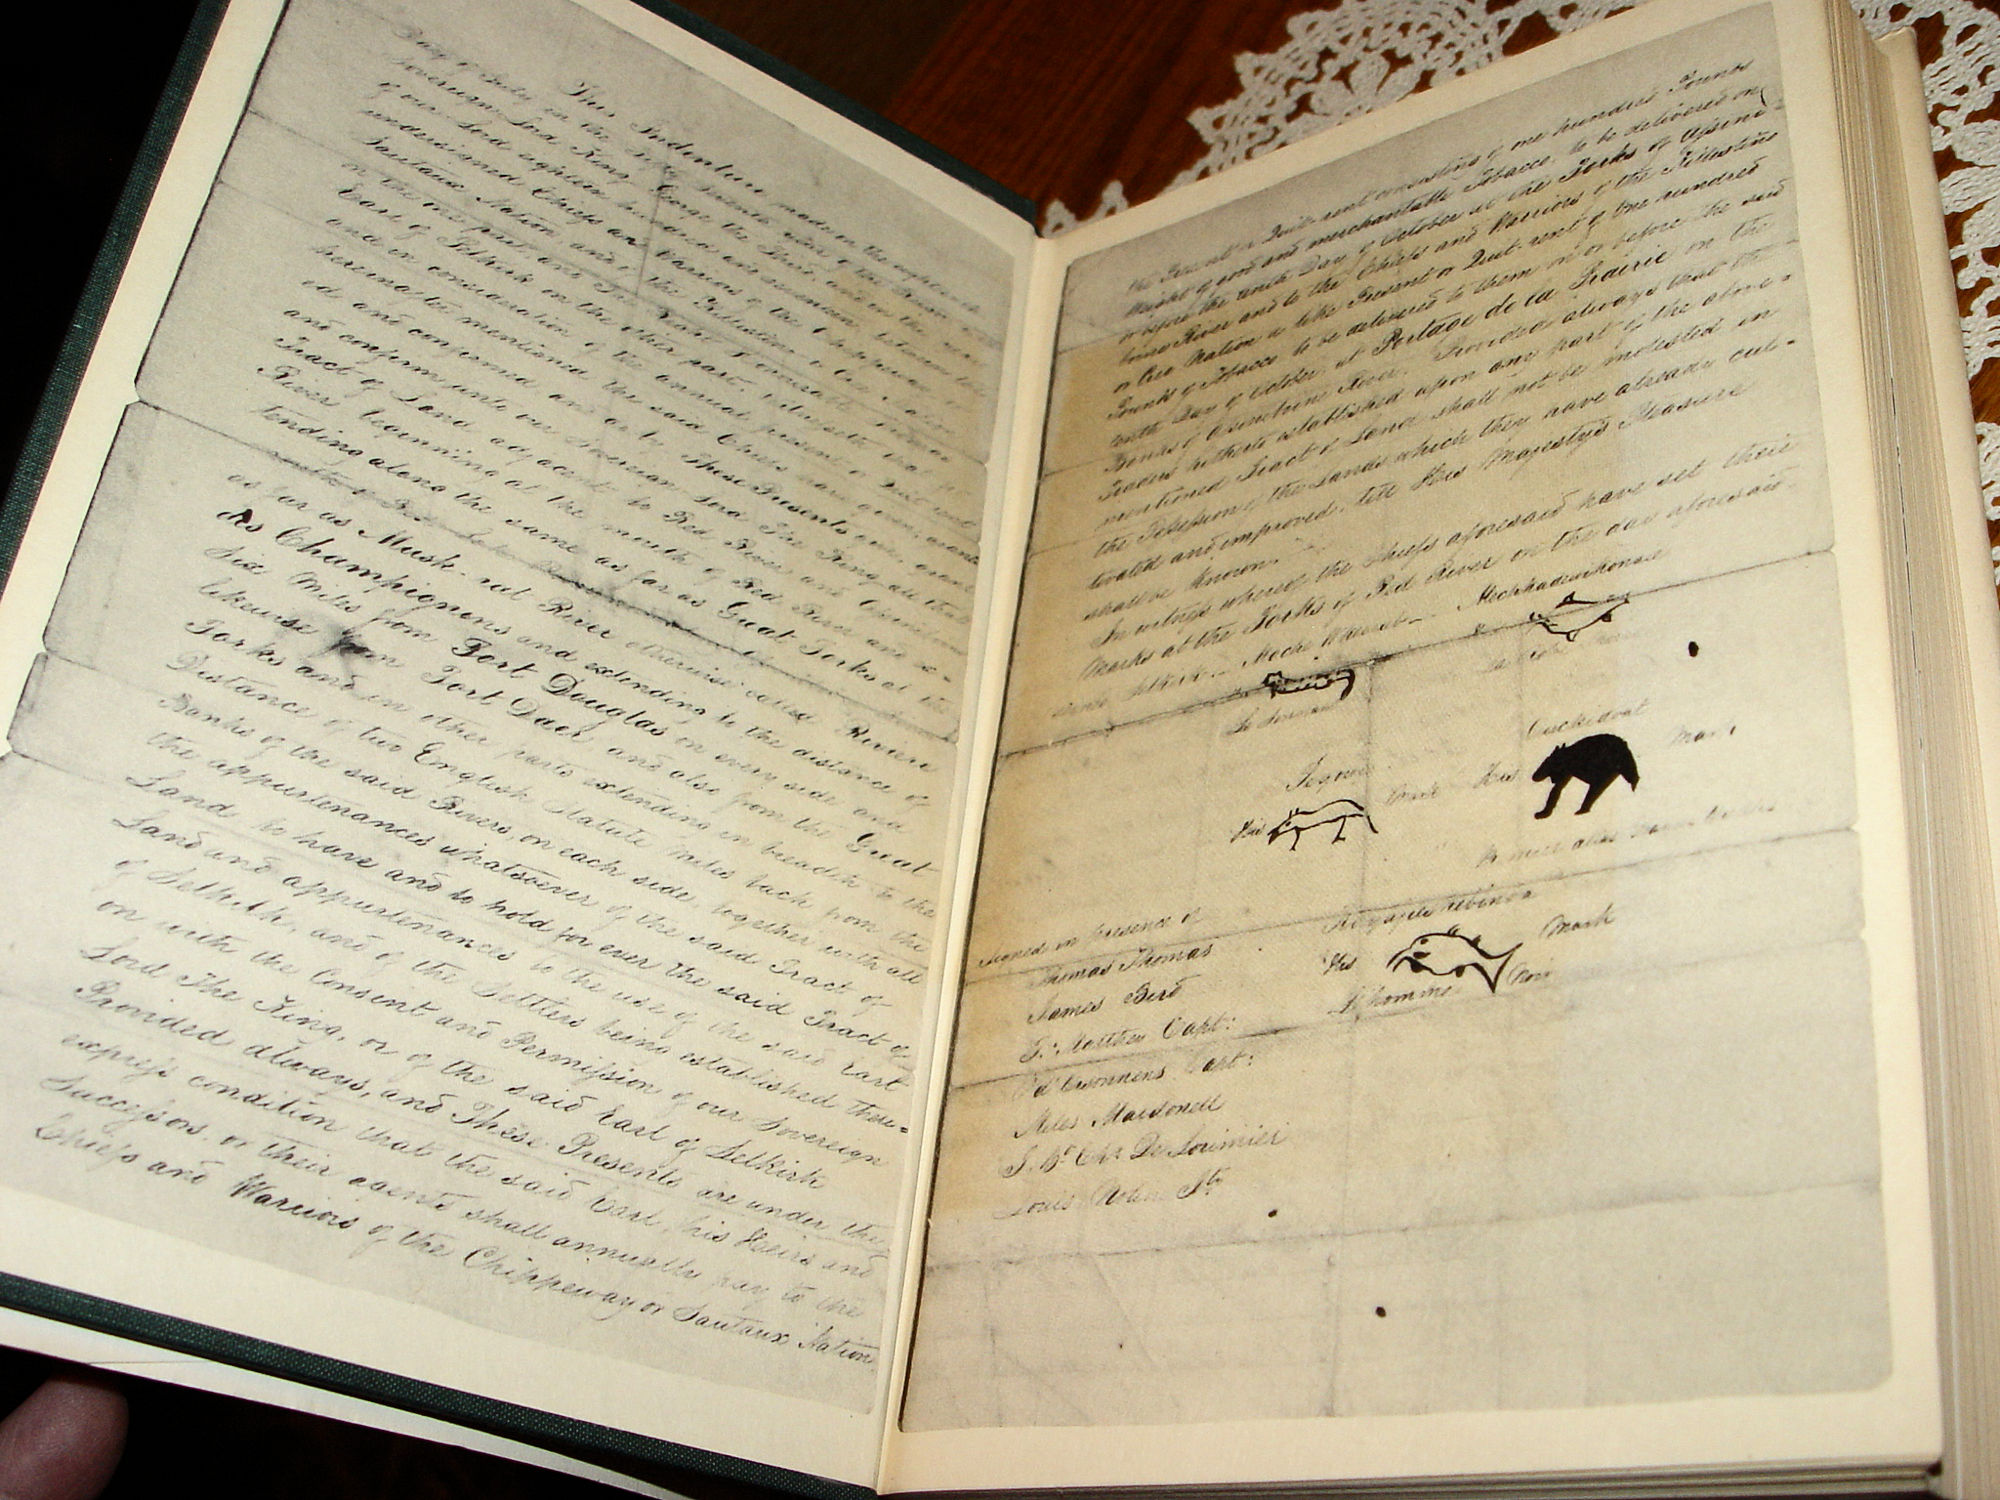 This Indenture, made on the eighteenth
Day of July in the fifty seventh year of the Reign of
Sovereign Lord King George the Third, and in the year
of our Lord eighteen hundred and seventeen, between the
undersigned Chiefs and Warriors of the Chippeway or
Sautaux Nation, and of the Killistine or Cree Nation
on the one part, and The Right Honorable Thomas
Earl of Selkirk on the other part. Witnesseth that for
and in consideration of the annual present or Quit rent
hereinafter mentioned the said Chiefs have given, grant-
ed and confirmed and do by These Presents give, grant
and confirm unto our Sovereign Lord The King, all that
Tract of Land adjacent to Red River and Ossiniboyne
River, beginning at the mouth of Red River and ex-
tending along the same as far as Great Forks at the
mouth of Red Lake River
as far as Musk-rat River otherwise called Riviere
des Champignons and extending to the distance of
Six Miles from Fort Douglas on every side and
likewise from Fort Daer and also from the Great
Forks and in other parts extending in breadth to the
Distance of two English Statute Miles back from the
Banks of the said Rivers, on each side, together with all
the appurtenances whatsoever of the said Tract of
Land, to have and to hold for ever the said Tract of
Land and appurtenances to the use of the said Earl
of Selkirk, and of the Settlers being established there-
on with the Consent and Permission of our Sovereign
Lord The King, or of the said Earl of Selkirk
Provided always, and These Presents are under the
express condition that the said Earl, his Heirs and
Successors, or their agents shall annually pay to the
Chiefs and Warriors of the Chippeway or Sautaux Nation
the Present or Quit-rent consisting of one hundred Pounds
Weight of good and merchantable Tobacco, to be delivered on
or before the tenth Day of October at the Forks of Ossini
boine River and to the Chiefs and Warriors of the Killistine
or Cree Nation a like Present or Quit-rent of one hundred
Pounds of Tobacco to be delivered to them on or before the said
tenth Day of October at Portage de la Prairie on the
Banks of Ossiniboine River. Provided always that the
Traders hitherto established upon any part of the above-
mentioned Tract of Land shall not be molested in
the Possession of the Lands which they have already cul-
tivated and improved, till His Majesty's Pleasure
shall be known.
In witness whereof the Chiefs aforesaid have set their
Marks at the Forks of Red River on the day aforesaid.
Selkirk Mechkaddewikonaie
Le Sonnant
Ouckidoat
Mark
His
Mark
His
Signed in Presence of
Thomas Thomas
James Bird
F. Matthey Capt:
P d'Orsonnens Capt:
Miles Macdonell
J. Bt. Chr. De Lorimier
Louis Nolin
Kayajieskebinoa
His
Mark
L'homme Noir